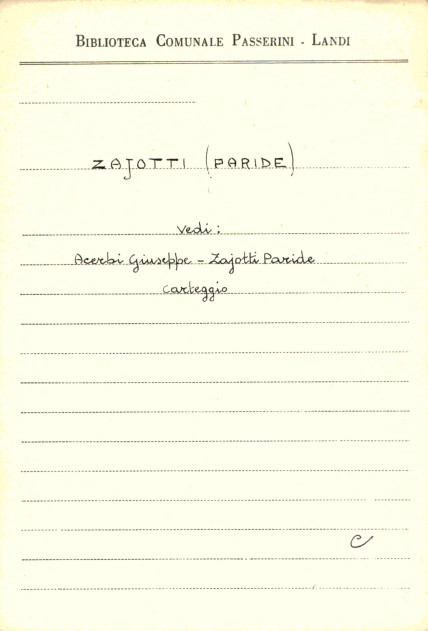 BIBLIOTECA COMUNALE PASSERINI - LANDI
ZAJOTTI (PARIDE)
Vedi:
Acerbi Giuseppe - Zajotti Paride
Carteggio
C